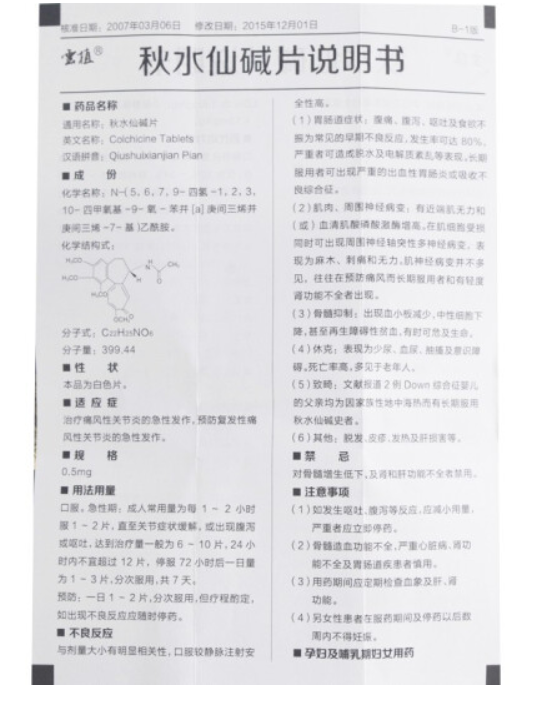 核准日期：2007年03月06日 修改日期：2015年12月01日
B-1版
云植®
秋水仙碱片说明书
■ 药品名称
通用名称：秋水仙碱片
英文名称：Colchicine Tablets
汉语拼音：Qiushuixianjian Pian
■ 成 份
化学名称：N-(5，6，7，9-四氢-1，2，3，
10-四甲氧基-9-氧-苯并[a]庚间三烯并
庚间三烯-7-基)乙酰胺。
化学结构式：
H₃CO
H₃CO
H₃CO
OCH₃
O
H
N
H
O
CH₃
分子式：C22H25NO6
分子量：399.44
■ 性 状
本品为白色片。
■ 适 应 症
治疗痛风性关节炎的急性发作，预防复发性痛
风性关节炎的急性发作。
■ 规 格
0.5mg
■ 用法用量
口服。急性期：成人常用量为每 1 ~ 2 小时
服 1 ~ 2 片，直至关节症状缓解，或出现腹泻
或呕吐，达到治疗量一般为 6 ~ 10 片，24 小
时内不宜超过 12 片，停服 72 小时后一日量
为 1 ~ 3 片，分次服用，共 7 天。
预防：一日 1 ~ 2 片，分次服用，但疗程酌定，
如出现不良反应应随时停药。
■ 不良反应
与剂量大小有明显相关性，口服较静脉注射安
全性高。
(1) 胃肠道症状：腹痛、腹泻、呕吐及食欲不
振为常见的早期不良反应，发生率可达 80%，
严重者可造成脱水及电解质紊乱等表现。长期
服用者可出现严重的出血性胃肠炎或吸收不
良综合征。
(2) 肌肉、周围神经病变：有近端肌无力和
(或) 血清肌酸磷酸激酶增高。在肌细胞受损
同时可出现周围神经轴突性多神经病变，表
现为麻木、刺痛和无力。肌神经病变并不多
见，往往在预防痛风而长期服用者和有轻度
肾功能不全者出现。
(3) 骨髓抑制：出现血小板减少，中性细胞下
降，甚至再生障碍性贫血，有时可危及生命。
(4) 休克：表现为少尿、血尿、抽搐及意识障
碍。死亡率高，多见于老年人。
(5) 致畸：文献报道 2 例 Down 综合征婴儿
的父亲均为因家族性地中海热而有长期服用
秋水仙碱史者。
(6) 其他：脱发、皮疹、发热及肝损害等。
■ 禁 忌
对骨髓增生低下，及肾和肝功能不全者禁用。
■ 注意事项
(1) 如发生呕吐、腹泻等反应，应减小用量，
严重者应立即停药。
(2) 骨髓造血功能不全，严重心脏病、肾功
能不全及胃肠道疾患者慎用。
(3) 用药期间应定期检查血象及肝、肾
功能。
(4) 另女性患者在服药期间及停药以后数
周内不得妊娠。
■ 孕妇及哺乳期妇女用药